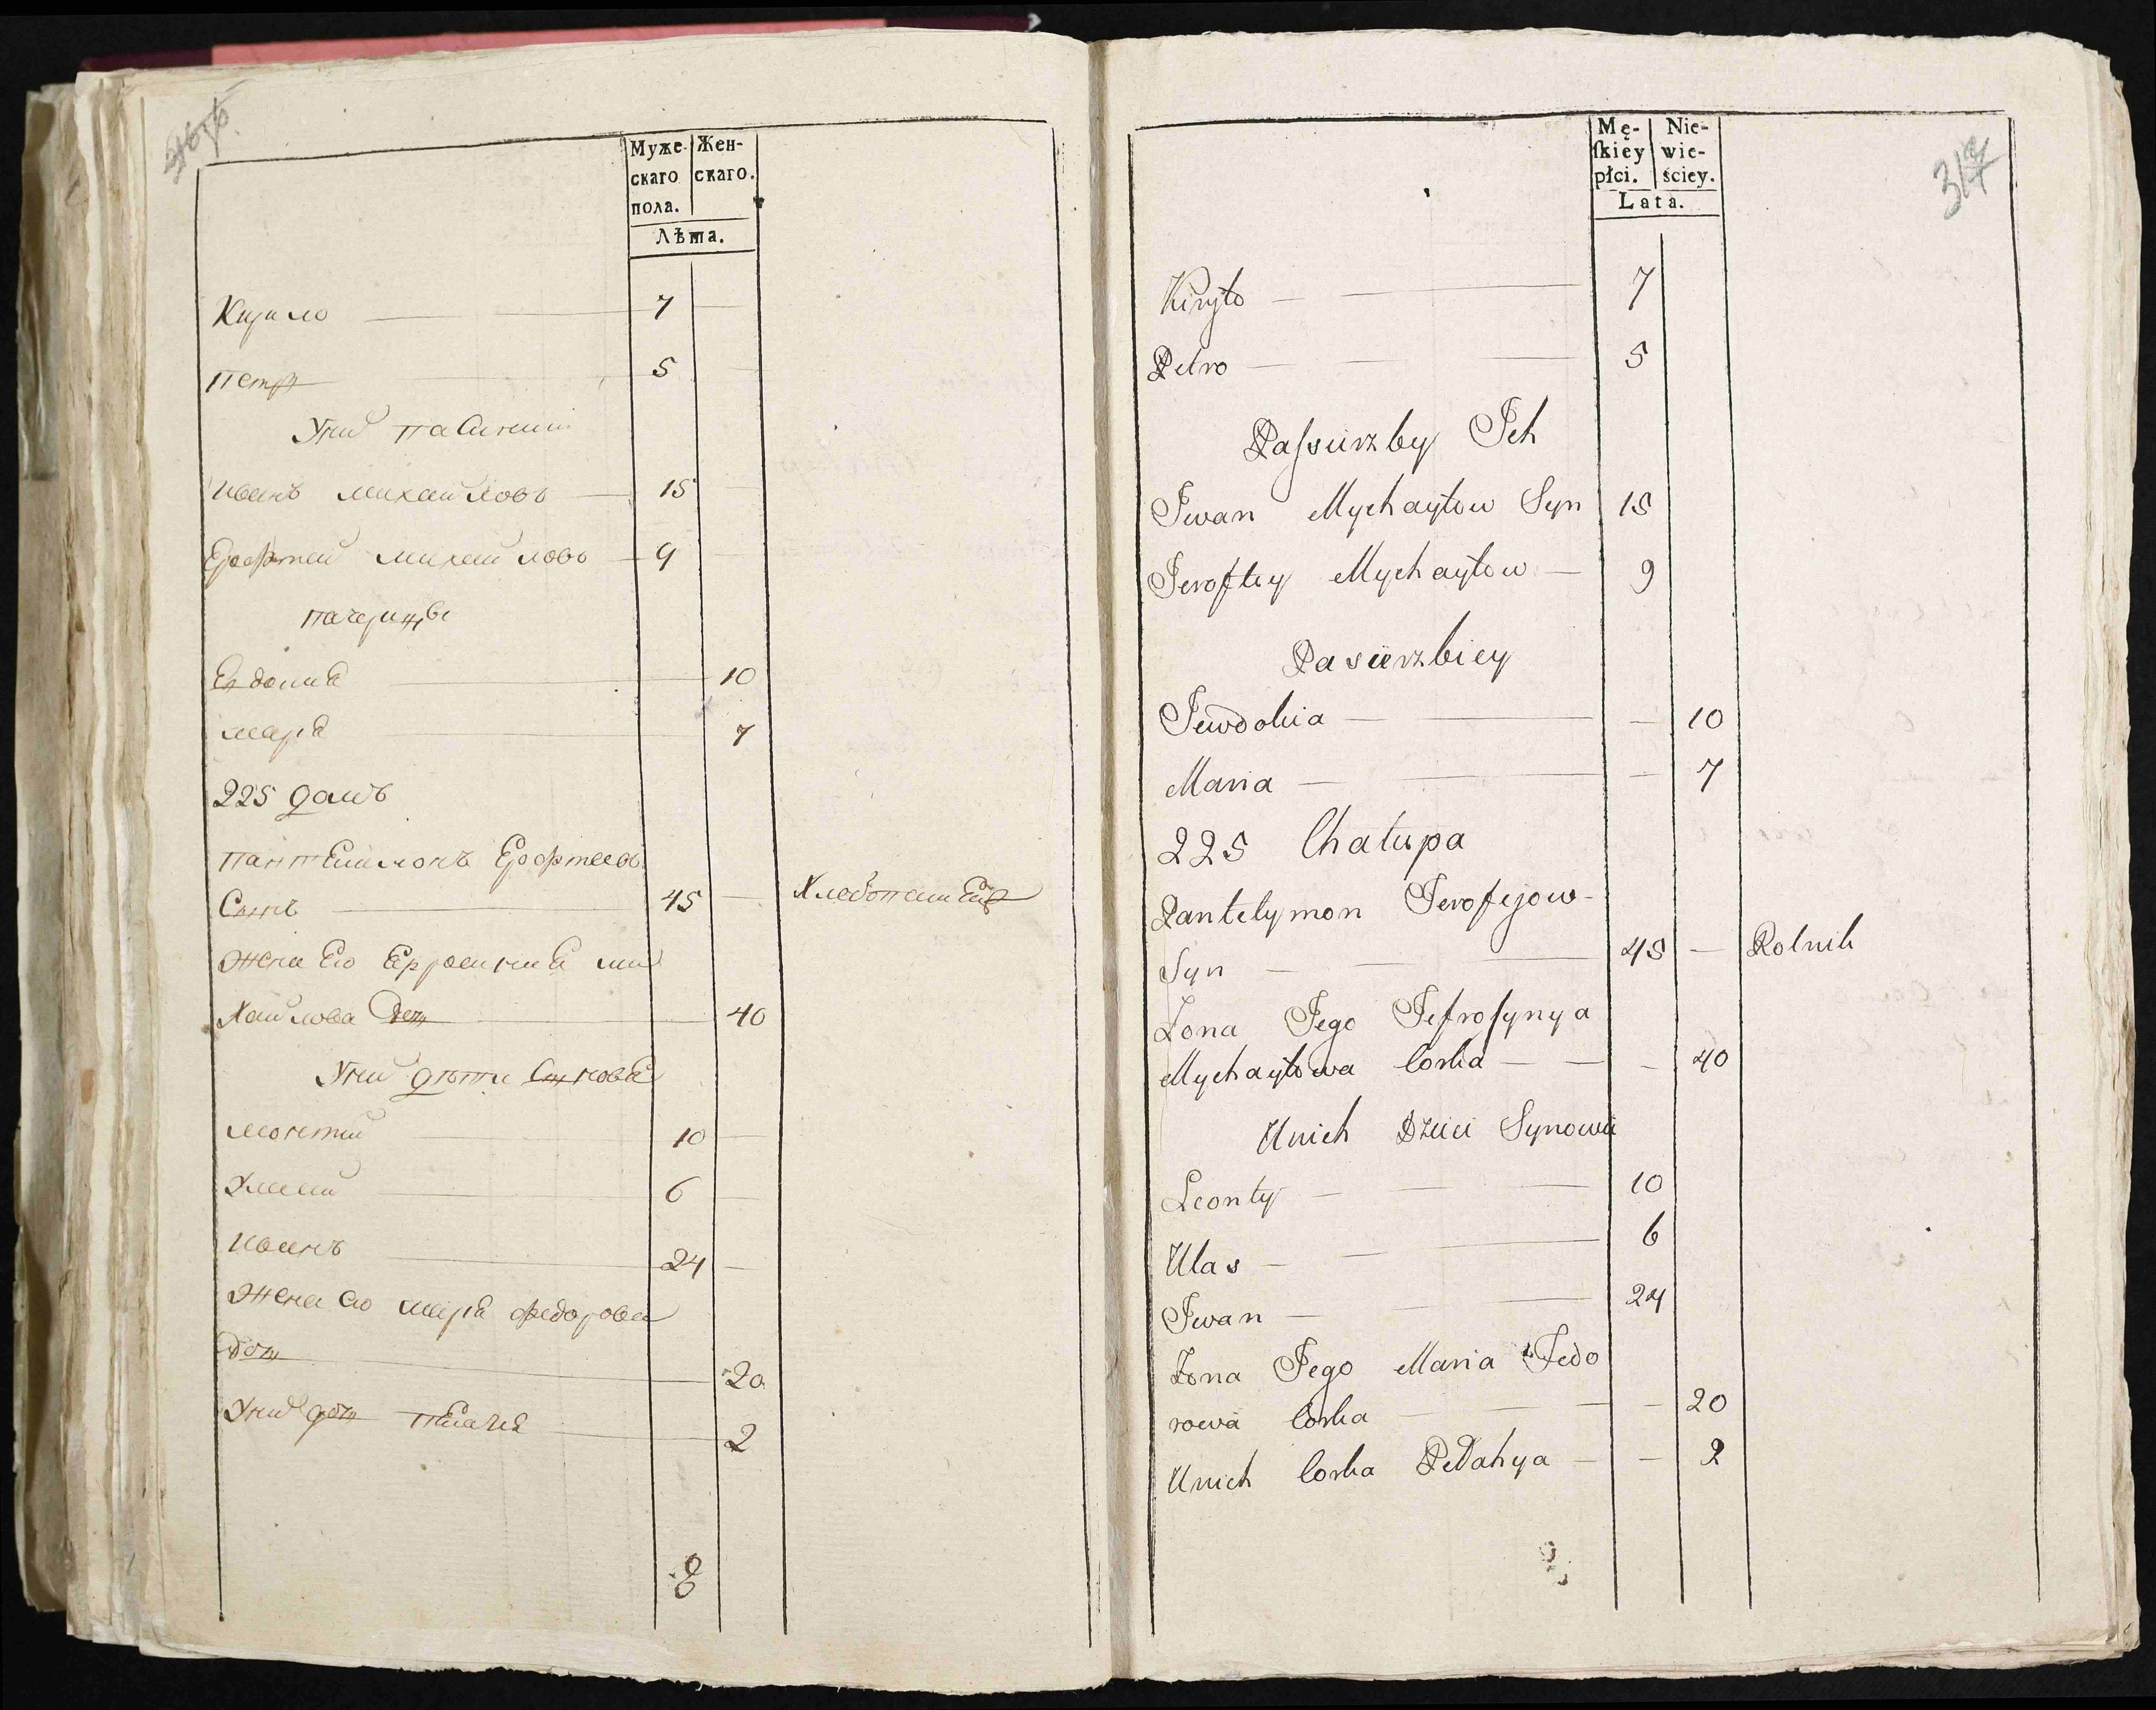 Муже-
скаго
пола.
Жен-
скаго.
Лѣта.
Кирило 7
Петръ 5
У нихъ пасинки
Иванъ Михайловъ 15
Ерофтей Михайловъ 9
Пачерицы
Евдокия 10
Маря 7
225 домъ
Пантелимонъ Ерофтеевъ
Сынъ 45 — Хлебопашецъ
Жена Его Ефросиния Ми
хайлова дочь 40
У нихъ дети Синовя
Леонтий 10
6
Иванъ 24
Жена его Маря Федорова
дочь 20
У нихъ дочь 2
8
317
Mę-
skiey
płci.
Nie-
wie-
ściey.
Lata.
Kiryło 7
Petro 5
Passierzby Ich
Iwan Mychayłow Syn 15
Ieroftey Mychayłow 9
Pasierzbicy
Iewdokia 10
Maria 7
225 Chałupa
Pantelymon Ierofejow
Syn 45 — Rolnik
Zona Iego Iefrosynya
Mychayłowa Corka 40
Unich Dzieci Synowie
Leonty 10
Ulas 6
Iwan 24
Zona Iego Maria Fedo
rowa Corka 20
Unich Corka Pełahya 2